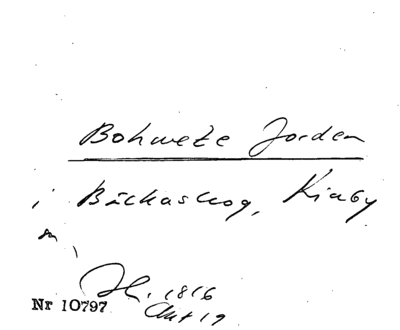 Bohwete Jorden
i Bäckaskog, Kiaby
sn,
Jh. 1816
Akt 19
Nr 10797